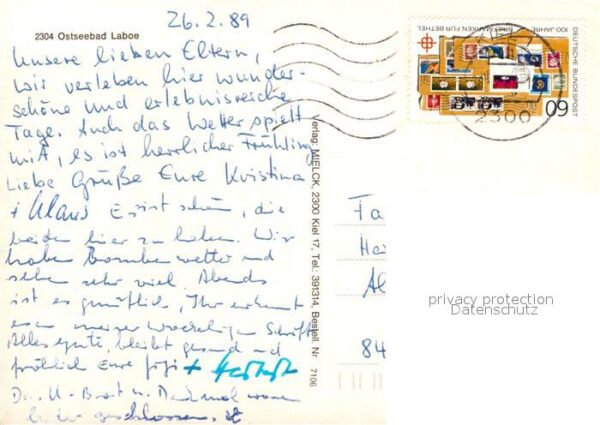 26.2.89
2304 Ostseebad Laboe
Unsere lieben Eltern,
wir verleben hier wunder-
schöne und erlebnisreiche
Tage. Auch das Wetter spielt
mit, es ist herrlicher Frühling
Liebe Grüße Eure Kristina
+ Klaus Es ist schön, die
beiden hier zu haben. Wir
haben Bombenwetter und
sehen sehr viel. Abends
ist es gemütlich, Ihr erkennt
es an meiner wackeligen Schrift
Alles Gute, bleibt gesund und
fröhlich Eure +
U-Boot u. Denkmal waren
geschlossen.
Verlag: MIELCK, 2300 Kiel 17, Tel.: 391314, Bestell. Nr 7106
DEUTSCHE BUNDESPOST
100 JAHRE
BRIEFMARKEN FÜR BETHEL
60
2300
Fa
He
Al
84
privacy protection
Datenschutz